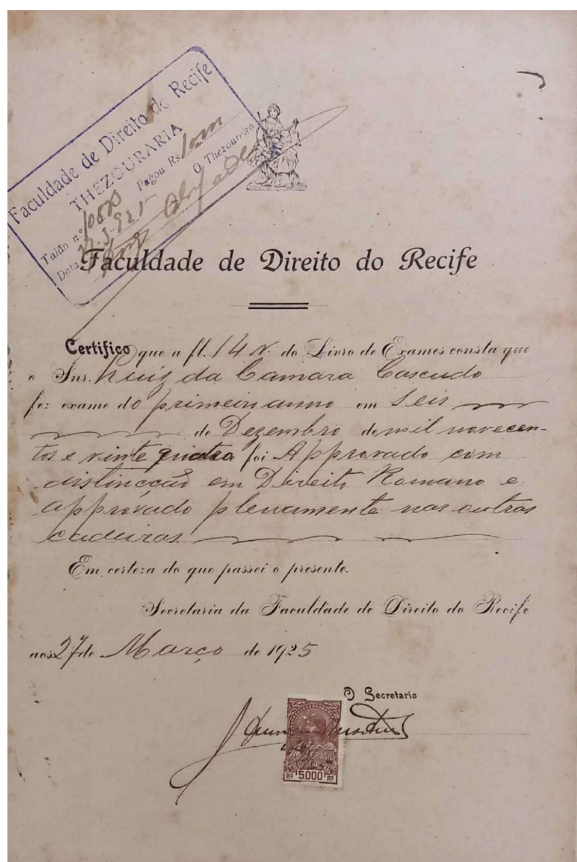 Faculdade de Direito do Recife
THEZOURARIA
Talão nº Pagou Rs
Data O Thezoureiro
Faculdade de Direito do Recife
Certifico que a fl. 14 v. do Livro de Exames consta que
o Snr. Luiz da Camara Cascudo
fez exame do primeiro anno em seis
de Dezembro de mil novecen-
tos e vinte quatro foi Approvado com
distincção em Direito Romano e
approvado plenamente nas outras
cadeiras
Em certeza do que passei o presente.
Secretaria da Faculdade de Direito do Recife
aos 27 de Março de 1925
O Secretario
BRASIL
RS 5000 RS